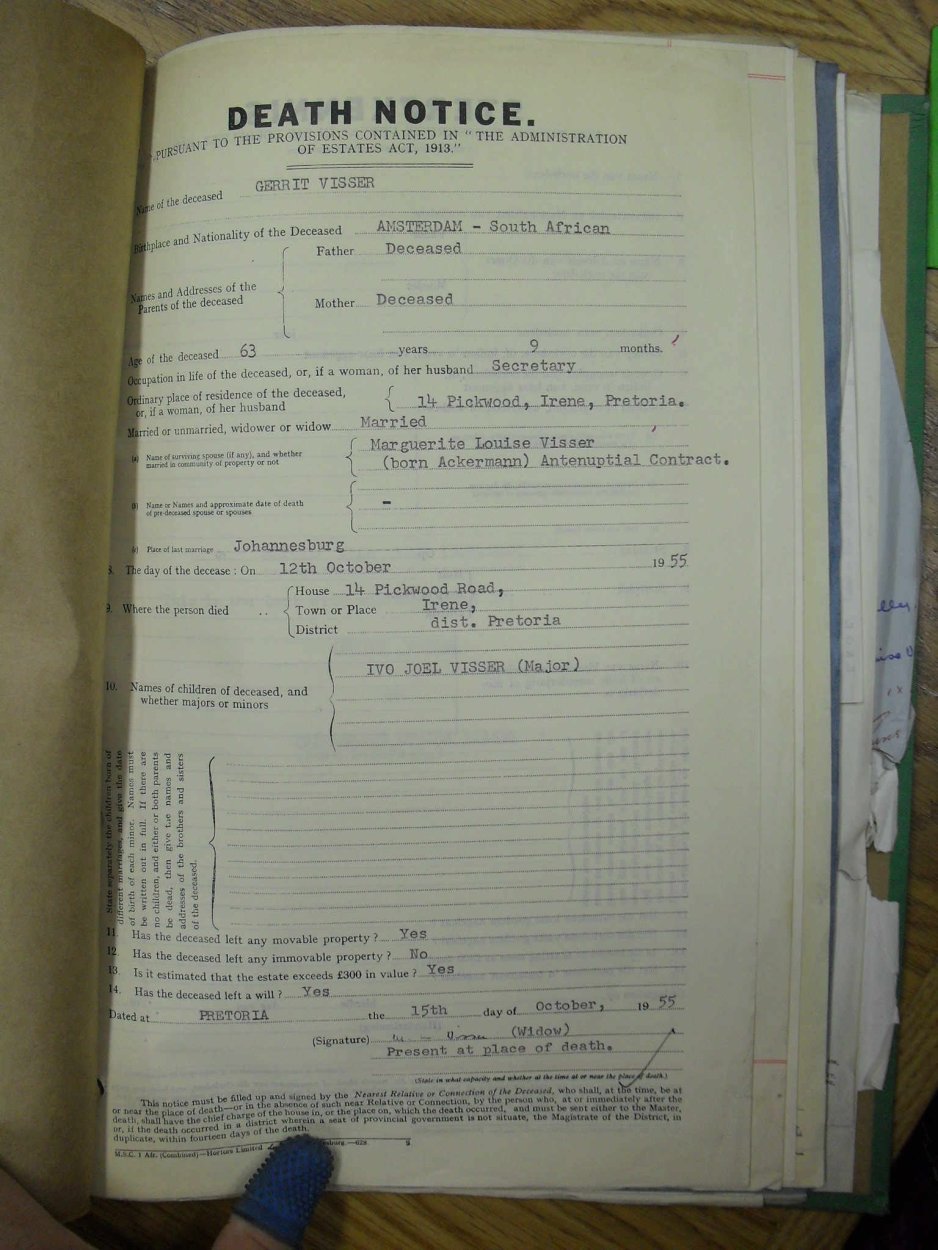 DEATH NOTICE.
PURSUANT TO THE PROVISIONS CONTAINED IN "THE ADMINISTRATION
OF ESTATES ACT, 1913."
Name of the deceased GERRIT VISSER
Birthplace and Nationality of the Deceased AMSTERDAM - South African
Names and Addresses of the
Parents of the deceased
Father Deceased
Mother Deceased
Age of the deceased 63 years 9 months.
Occupation in life of the deceased, or, if a woman, of her husband Secretary
Ordinary place of residence of the deceased,
or, if a woman, of her husband 14 Pickwood, Irene, Pretoria.
Married or unmarried, widower or widow Married
(a) Name of surviving spouse (if any), and whether
married in community of property or not
Marguerite Louise Visser
(born Ackermann) Antenuptial Contract.
(b) Name or Names and approximate date of death
of pre-deceased spouse or spouses
-
(c) Place of last marriage Johannesburg
8. The day of the decease : On 12th October 1955
9. Where the person died ..
House 14 Pickwood Road,
Town or Place Irene,
District dist. Pretoria
10. Names of children of deceased, and
whether majors or minors
IVO JOEL VISSER (Major)
State separately the children born of
different marriages, and give the date
of birth of each minor. Names must
be written out in full. If there are
no children, and either or both parents
be dead, then give the names and
addresses of the brothers and sisters
of the deceased.
11. Has the deceased left any movable property ? Yes
12. Has the deceased left any immovable property ? No
13. Is it estimated that the estate exceeds £300 in value ? Yes
14. Has the deceased left a will ? Yes
Dated at PRETORIA the 15th day of October, 1955
(Signature) (Widow)
Present at place of death.
(State in what capacity and whether at the time at or near the place of death.)
This notice must be filled up and signed by the Nearest Relative or Connection of the Deceased, who shall, at the time, be at
or near the place of death—or in the absence of such near Relative or Connection, by the person who, at or immediately after the
death, shall have the chief charge of the house in, or the place on, which the death occurred, and must be sent either to the Master,
or, if the death occurred in a district wherein a seat of provincial government is not situate, the Magistrate of the District, in
duplicate, within fourteen days of the death.
M.S.C. 1 Afr. (Combined)—Hortors Limited